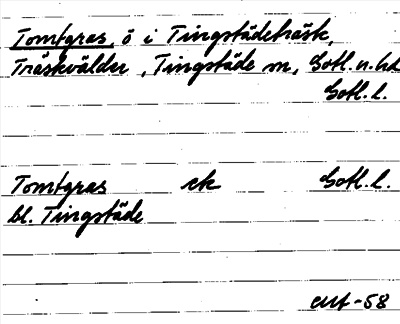 Tomtgras, ö i Tingstädeträsk,
Träskvälder, Tingstäde sn, Gotl. n. hd
Gotl. l.
Tomtgras ek Gotl. l.
bl. Tingstäde
-58